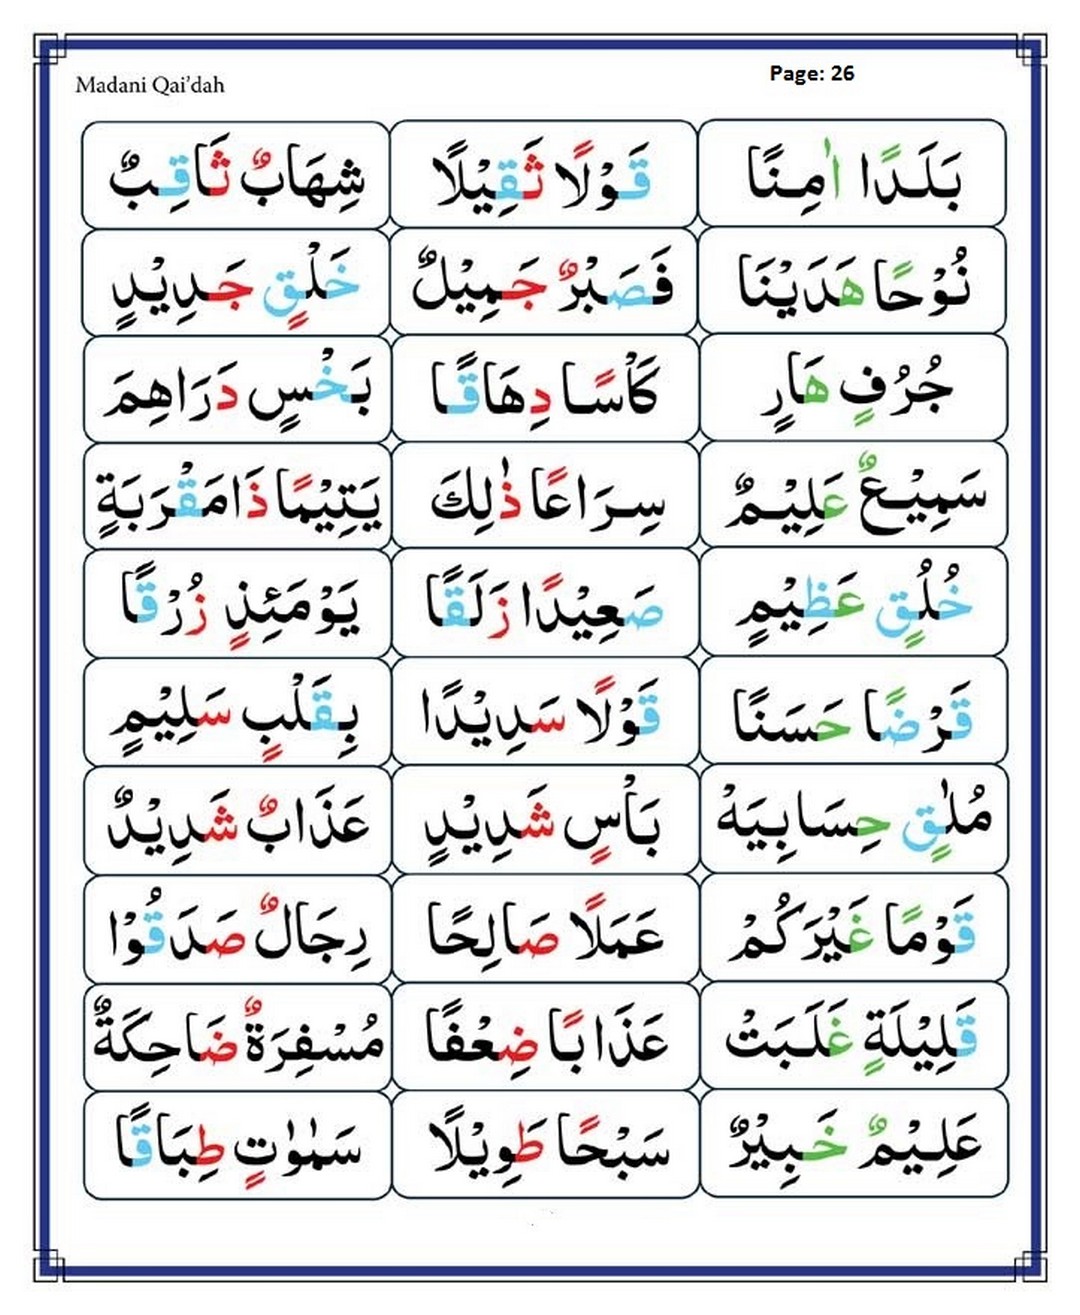 Madani Qai’dah
Page: 26
بَلَدًا اٰمِنًا
قَوْلًا ثَقِيْلًا
شِهَابٌ ثَاقِبٌ
نُوْحًا هَدَيْنَا
فَصَبْرٌ جَمِيْلٌ
خَلْقٍ جَدِيْدٍ
جُرُفٍ هَارٍ
كَاْسًا دِهَاقًا
بَخْسٍ دَرَاهِمَ
سَمِيْعٌ عَلِيْمٌ
سِرَاعًا ذٰلِكَ
يَتِيْمًا ذَامَقْرَبَةٍ
خُلُقٍ عَظِيْمٍ
صَعِيْدًا زَلَقًا
يَوْمَئِذٍ زُرْقًا
قَرْضًا حَسَنًا
قَوْلًا سَدِيْدًا
بِقَلْبٍ سَلِيْمٍ
مُلٰقٍ حِسَابِيَهْ
بَاْسٍ شَدِيْدٍ
عَذَابٌ شَدِيْدٌ
قَوْمًا غَيْرَكُمْ
عَمَلًا صَالِحًا
رِجَالٌ صَدَقُوْا
قَلِيْلَةٍ غَلَبَتْ
عَذَابًا ضِعْفًا
مُسْفِرَةٌ ضَاحِكَةٌ
عَلِيْمٌ خَبِيْرٌ
سَبْحًا طَوِيْلًا
سَمٰوٰتٍ طِبَاقًا